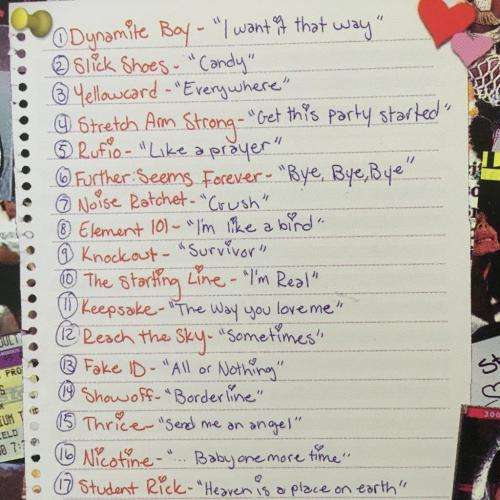 ① Dynamite Boy - "I want it that way"
② Slick Shoes - "Candy"
③ Yellowcard - "Everywhere"
④ Stretch Arm Strong - "Get this party started"
⑤ Rufio - "Like a prayer"
⑥ Further Seems Forever - "Bye, Bye, Bye"
⑦ Noise Ratchet - "Crush"
⑧ Element 101 - "I'm like a bird"
⑨ Knockout - "Survivor"
⑩ The Starting Line - "I'm Real"
⑪ Keepsake - "The Way you love me"
⑫ Reach the Sky - "Sometimes"
⑬ Fake ID - "All or Nothing"
⑭ Showoff - "Borderline"
⑮ Thrice - "Send me an angel"
⑯ Nicotine - "... Baby one more time"
⑰ Student Rick - "Heaven is a place on earth"